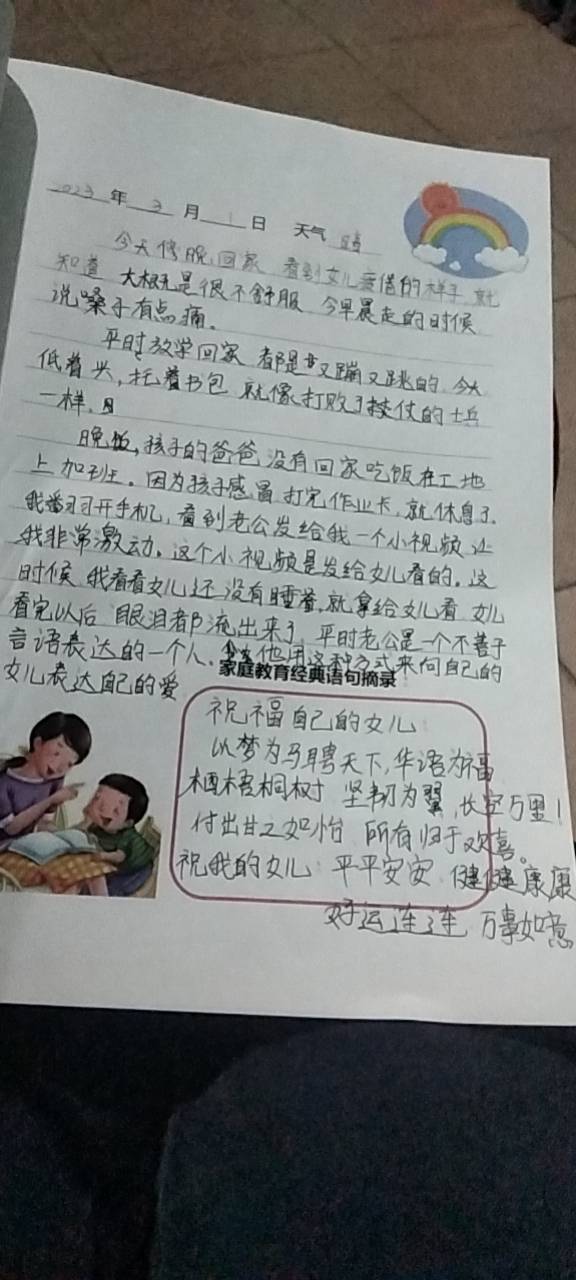 2023年3月1日 天气 晴
今天傍晚回家 看到女儿疲惫的样子 就
知道 大概是很不舒服 今早晨走的时候
说嗓子有点痛。
平时放学回家 都是又蹦又跳的 今天
低着头,托着书包 就像打败了仗的士兵
一样.
晚饭,孩子的爸爸没有回家吃饭在工地
上加班。因为孩子感冒 打完作业卡,就休息了.
我翻开手机,看到老公发给我一个小视频 让
我非常激动。这个小视频是发给女儿看的。这
时候 我看看女儿还没有睡着,就拿给女儿看 女儿
看完以后 眼泪都流出来了 平时老公是一个不善于
言语表达的一个人。他用这种方式来向自己的
女儿表达自己的爱
家庭教育经典语句摘录
祝福自己的女儿:
以梦为马骋天下,华语为福
栖梧桐树 坚韧为翼,长空万里!
付出甘之如怡 所有归于欢喜。
祝我的女儿:平平安安 健健康康
好运连连 万事如意